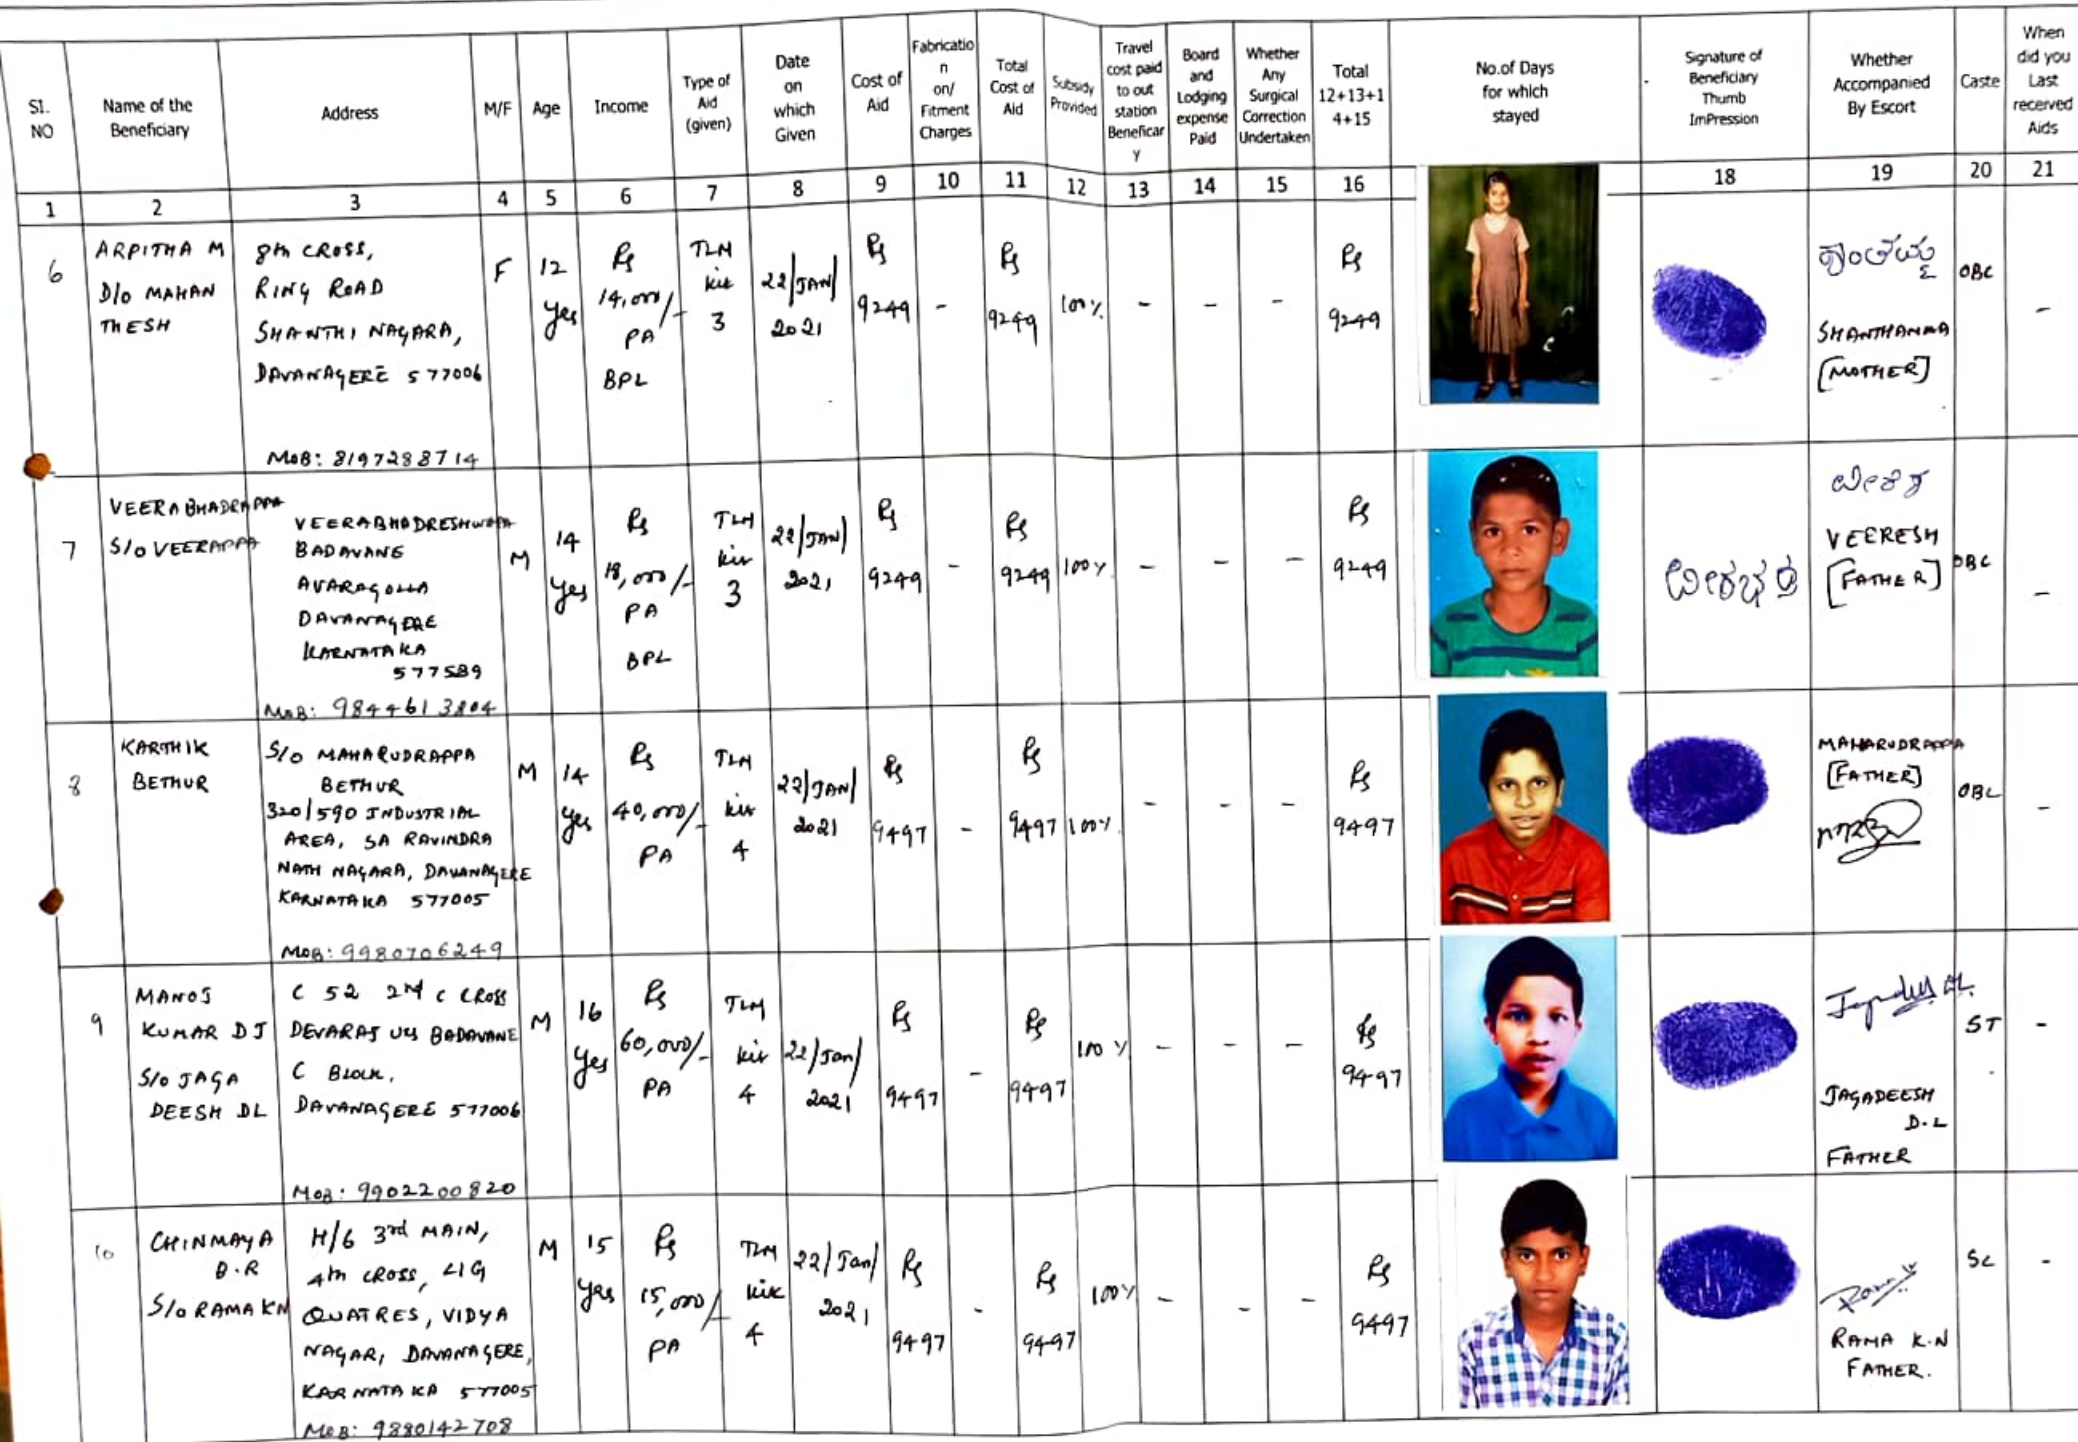 SI. NO
Name of the Beneficiary
Address
M/F
Age
Income
Type of Aid (given)
Date on which Given
Cost of Aid
Fabricatio n on/ Fitment Charges
Total Cost of Aid
Subsidy Provided
Travel cost paid to out station Beneficar y
Board and Lodging expense Paid
Whether Any Surgical Correction Undertaken
Total 12+13+1 4+15
No.of Days for which stayed
Signature of Beneficiary Thumb ImPression
Whether Accompanied By Escort
Caste
When did you Last received Aids
1 2 3 4 5 6 7 8 9 10 11 12 13 14 15 16 18 19 20 21
6
ARPITHA M
D/o MAHAN
THESH
8th CROSS,
RING ROAD
SHANTHI NAGARA,
DAVANAGERE 577006
MOB: 8197288714
F
12
Yes
Rs
14,000/-
PA
BPL
TLM
kit
3
22/JAN/
2021
Rs
9249
-
Rs
9249
100%
-
-
-
Rs
9249
ಶಾಂತಮ್ಮ
SHANTHAMMA
[MOTHER]
OBC
-
7
VEERABHADRAPPA
S/o VEERAPPA
VEERABHADRESHWARA
BADAVANE
AVARAGOLLA
DAVANAGERE
KARNATAKA
577589
MOB: 9844613804
M
14
Yes
Rs
18,000/-
PA
BPL
TLM
kit
3
22/JAN/
2021
Rs
9249
-
Rs
9249
100%
-
-
-
Rs
9249
ವೀರಭದ್ರ
ವೀರೇಶ
VEERESH
[FATHER]
OBC
-
8
KARTHIK
BETHUR
S/o MAHARUDRAPPA
BETHUR
320/590 INDUSTRIAL
AREA, SA RAVINDRA
NATH NAGARA, DAVANAGERE
KARNATAKA 577005
MOB: 9980706249
M
14
Yes
Rs
40,000/-
PA
TLM
kit
4
22/JAN/
2021
Rs
9497
-
Rs
9497
100%
-
-
-
Rs
9497
MAHARUDRAPPA
[FATHER]
OBC
-
9
MANOJ
KUMAR D J
S/o JAGA
DEESH DL
C 52 2nd C CROSS
DEVARAJ URS BADAVANE
C BLOCK,
DAVANAGERE 577006
MOB: 9902200820
M
16
Yes
Rs
60,000/-
PA
TLM
kit
4
22/Jan/
2021
Rs
9497
-
Rs
9497
100%
-
-
-
Rs
9497
JAGADEESH
D.L
FATHER
ST
-
10
CHINMAYA
B.R
S/o RAMA KN
H/6 3rd MAIN,
4th CROSS, LIG
QUATRES, VIDYA
NAGAR, DAVANAGERE,
KARNATAKA 577005
MOB: 9880142708
M
15
Yes
Rs
15,000/-
PA
TLM
kit
4
22/Jan/
2021
Rs
9497
-
Rs
9497
100%
-
-
-
Rs
9497
RAMA K.N
FATHER.
SC
-